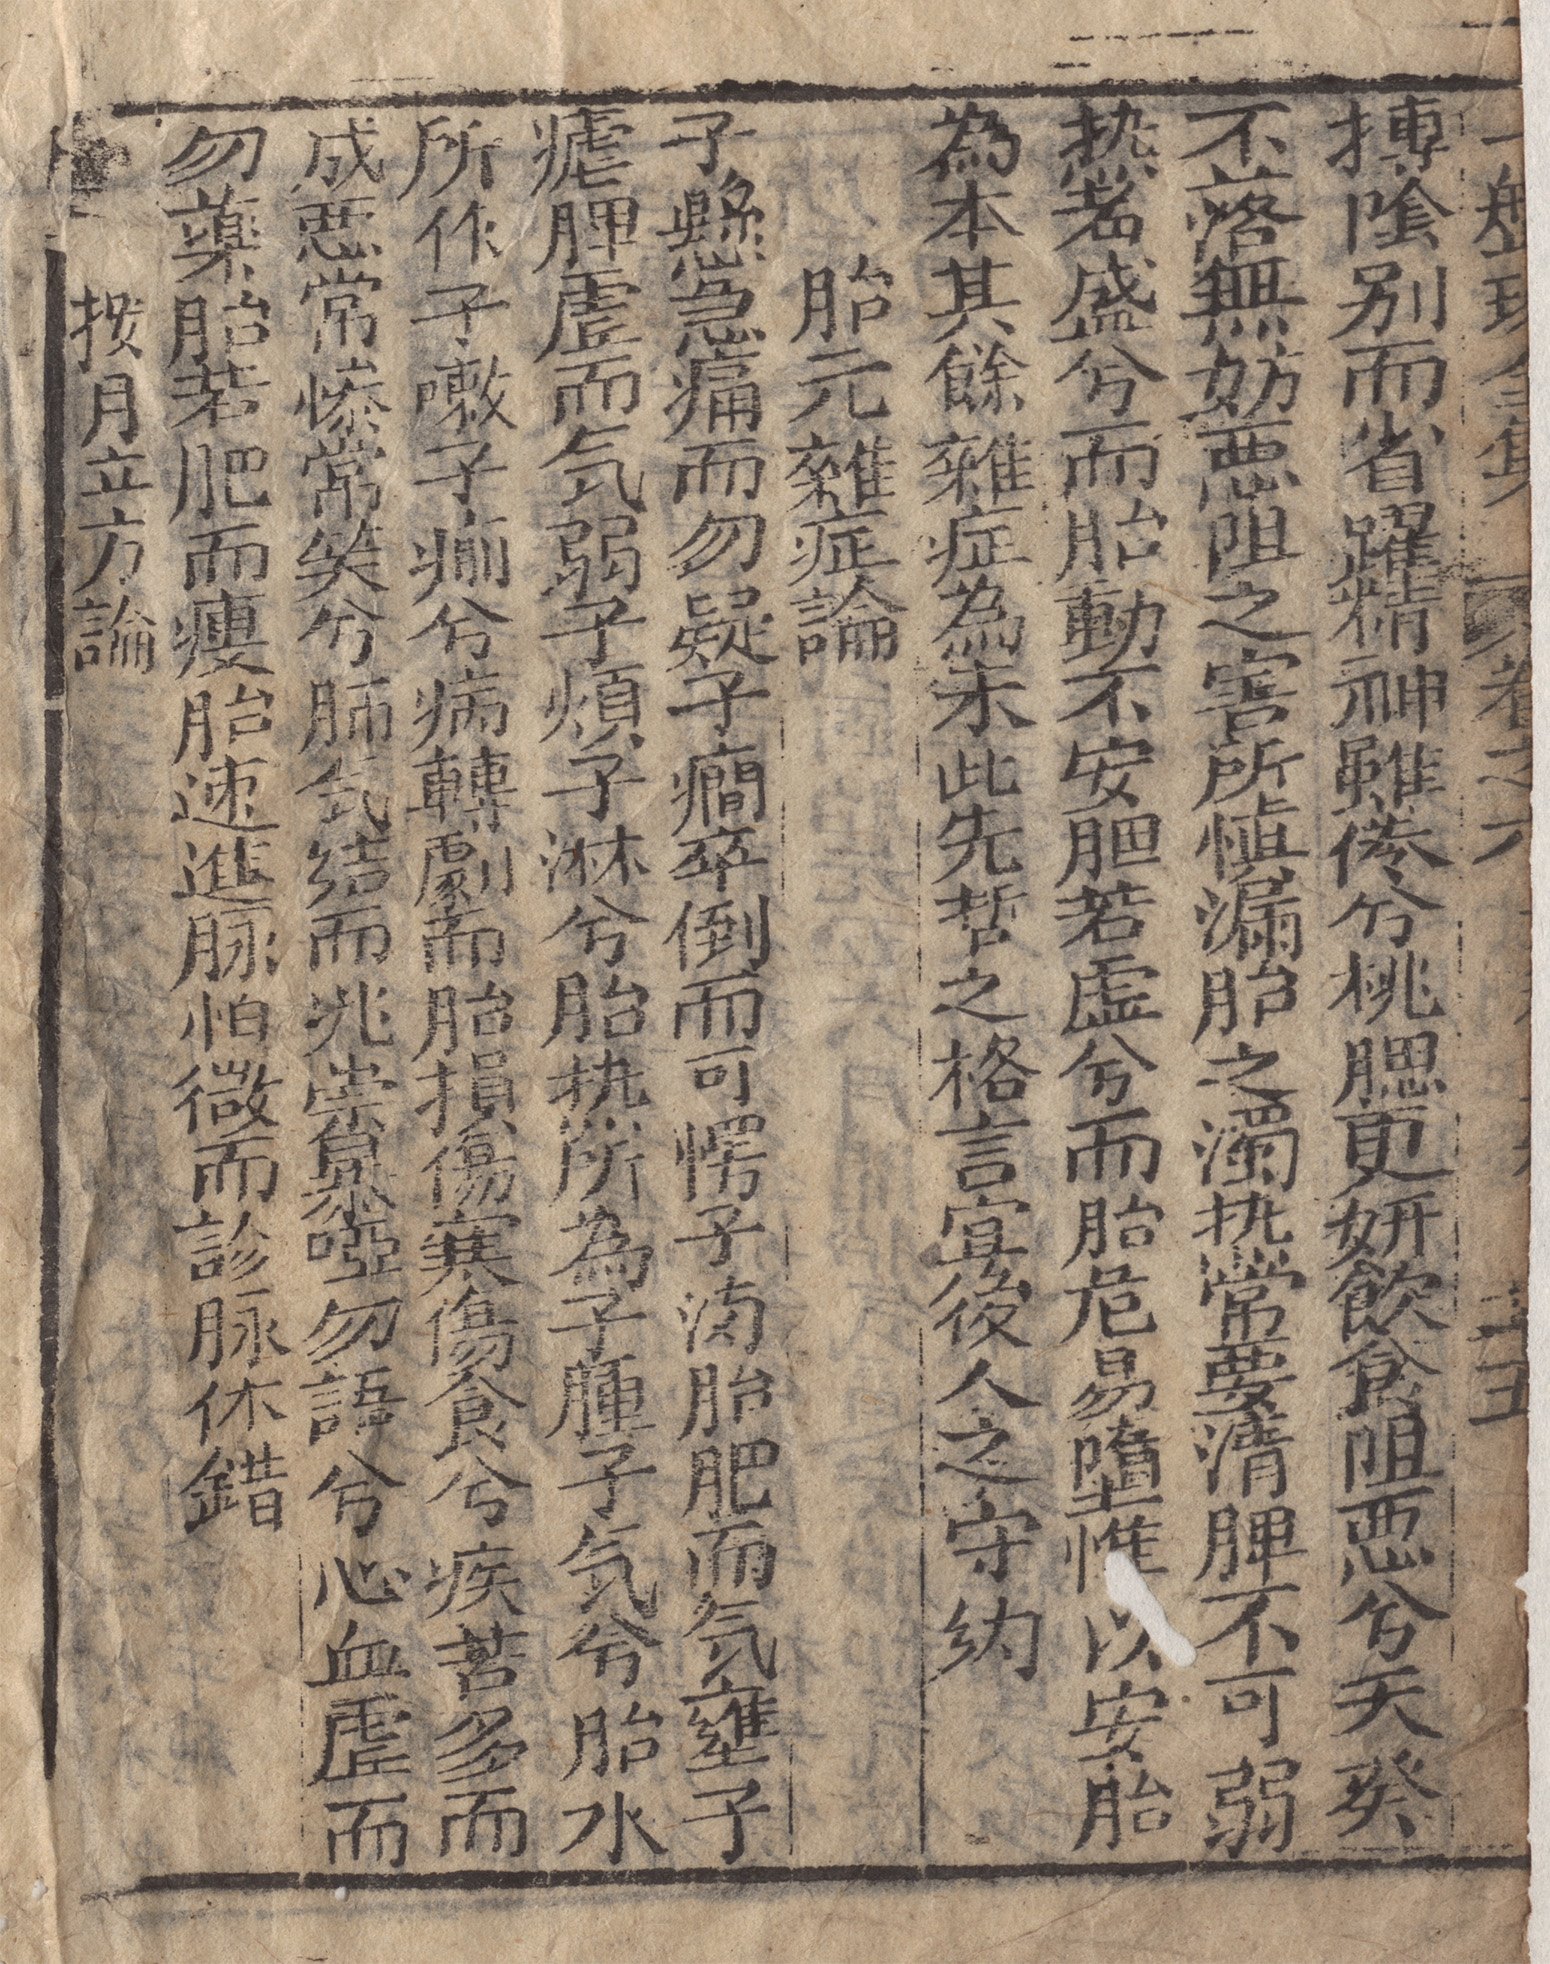 一盤珠全集 卷之六 三五
搏陰别而省躍精神雖倦兮桃腮更妍飲食阻惡兮天癸
不落無妨悪阻之害所慎漏胎之濁热常要清脾不可弱
热若盛兮而胎動不安肥若虚兮而胎危易墮惟以安胎
為本其餘雜症為末此先哲之格言宜後人之守約
胎元雜症論
子懸急痛而勿疑子癎卒倒而可愕子滿胎肥而気壅子
瘧脾虚而気弱子煩子淋兮胎热所為子腫子気兮胎水
所作子嗽子癎兮病轉劇而胎損傷寒傷食兮疾苦多而
成悪常惨常笑兮肺気结而兆祟暴啞勿語兮心血虚而
勿藥胎若肥而瘦胎速進脉怕微而診脉休錯
按月立方論